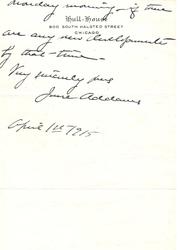 Monday morning – if there
Hull-House
800 SOUTH HALSTED STREET
CHICAGO
are any new developments
by that time –
Very sincerely yours
Jane Addams
April 1st 1915